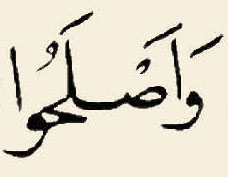 وَاَصْلَحُوا